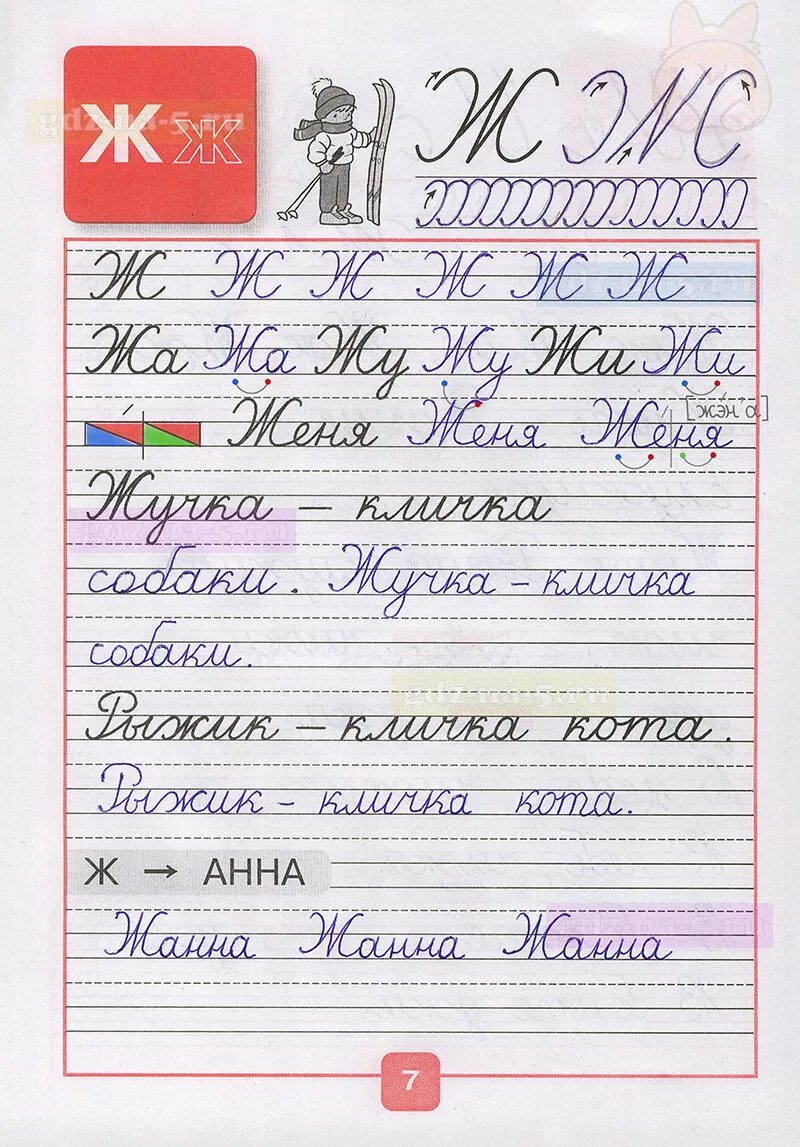 Ж ж
Ж
Ж Ж Ж Ж Ж Ж
Жа Жа Жу Жу Жи Жи
[жэн'а]
Женя Женя Женя
Жучка – кличка
собаки. Жучка – кличка
собаки.
Рыжик – кличка кота.
Рыжик – кличка кота.
Ж → АННА
Жанна Жанна Жанна
7
gdz-na-5.ru
gdz-na-5.ru